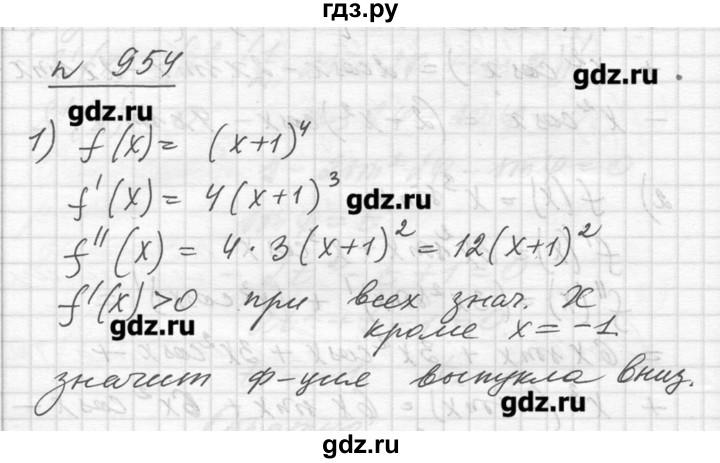 гдз.ру
n 954
gdz.ru
gdz.ru
1) f(x) = (x+1)^4
f'(x) = 4(x+1)^3
gdz.ru
f''(x) = 4·3(x+1)^2 = 12(x+1)^2
f'(x) > 0 при всех знач. x
gdz.ru
кроме x = -1
значит ф-ция выпукла вниз.
gdz.ru
gdz.ru